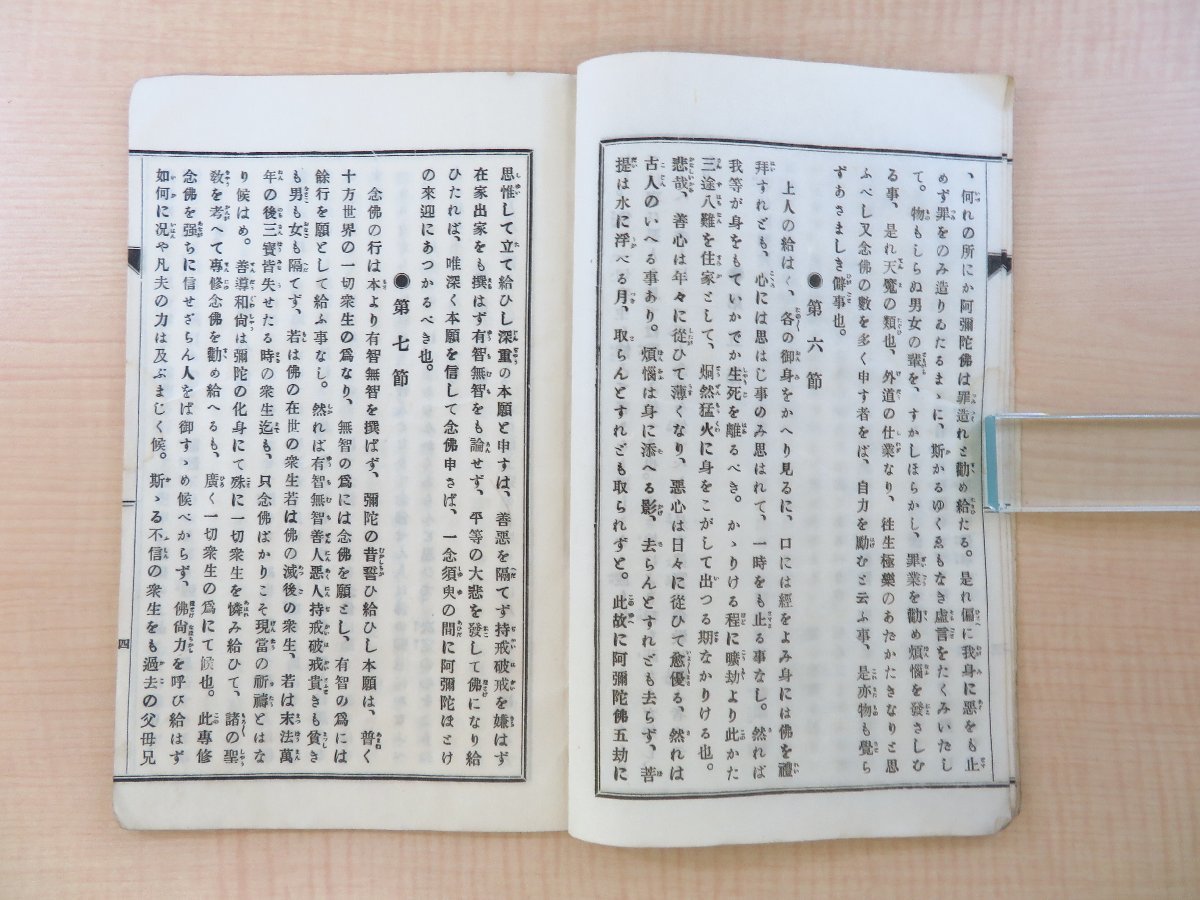 、何れの所にか阿彌陀佛は罪造れと勸め給たる。是れ偏に我身に惡をも止
めず罪をのみ造りゐたるまゝに、斯かるゆくゑもなき虛言をたくみいたし
て。物もしらぬ男女の輩を、すかしほらかし、罪業を勸め煩惱を發さしむ
る事、是れ天魔の類也、外道の仕業なり、徃生極樂のあたかたきなりと思
ふべし又念佛の數を多く申す者をば、自力を勵むと云ふ事、是亦物も覺ら
ずあさましき僻事也。
●第六節
上人の給はく、各の御身をかへり見るに、口には經をよみ身には佛を禮
拜すれども、心には思はじ事のみ思はれて、一時をも止る事なし。然れば
我等が身をもていかでか生死を離るべき。かゝりける程に曠劫より此かた
三途八難を住家として、炯然猛火に身をこがして出つる期なかりける也。
悲哉、善心は年々に從ひて薄くなり、惡心は日々に從ひて愈優る、然れは
古人のいへる事あり。煩惱は身に添へる影、去らんとすれども去らず、菩
提は水に浮べる月、取らんとすれども取られずと。此故に阿彌陀佛五劫に
思惟して立て給ひし深重の本願と申すは、善惡を隔てず持戒破戒を嫌はず
在家出家をも撰はず有智無智をも論せず、平等の大悲を發して佛になり給
ひたれば、唯深く本願を信して念佛申さば、一念須臾の間に阿彌陀ほとけ
の來迎にあつかるべき也。
●第七節
念佛の行は本より有智無智を撰ばず、彌陀の昔誓ひ給ひし本願は、普く
十方世界の一切衆生の爲なり、無智の爲には念佛を願とし、有智の爲には
餘行を願として給ふ事なし。然れば有智無智善人惡人持戒破戒貴きも貧き
も男も女も隔てず、若は佛の在世の衆生若は佛の滅後の衆生、若は末法萬
年の後三寶皆失せたる時の衆生迄も、只念佛ばかりこそ現當の祈禱とはな
り候はめ。善導和尙は彌陀の化身にて殊に一切衆生を憐み給ひて、諸の聖
敎を考へて專修念佛を勸め給へるも、廣く一切衆生の爲にて候也。此專修
念佛を强ちに信せざらん人をば御すゝめ候べからず、佛尙力を呼び給はず
如何に况や凡夫の力は及ぶまじく候。斯ゝる不信の衆生をも過去の父母兄
四